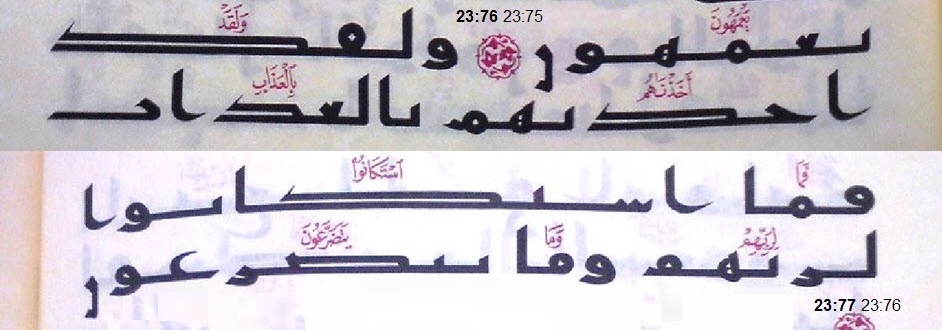 23:76 23:75
يَعْمَهُونَ وَلَقَدْ
يعمهون ولقد
أَخَذْنَاهُم بِالْعَذَابِ
اخذنهم بالعذاب
فَمَا ٱسْتَكَانُوا۟
فما استكانوا
لِرَبِّهِمْ وَمَا يَتَضَرَّعُونَ
لربهم وما يتضرعون
23:77 23:76